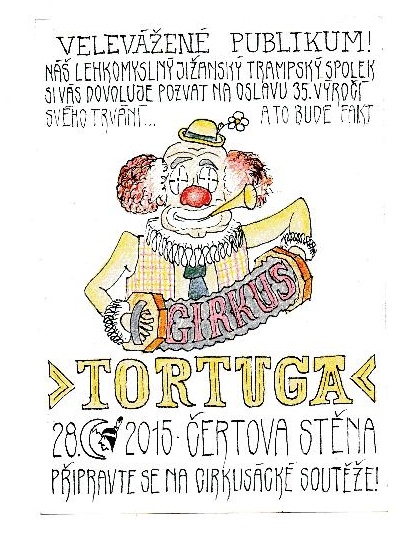 VELEVÁŽENÉ PUBLIKUM!
NÁŠ LEHKOMYSLNÝ JIŽANSKÝ TRAMPSKÝ SPOLEK
SI VÁS DOVOLUJE POZVAT NA OSLAVU 35. VÝROČÍ
SVÉHO TRVÁNÍ... A TO BUDE FAKT
CIRKUS
TORTUGA
28. 2015 · ČERTOVA STĚNA
PŘIPRAVTE SE NA CIRKUSÁCKÉ SOUTĚŽE!